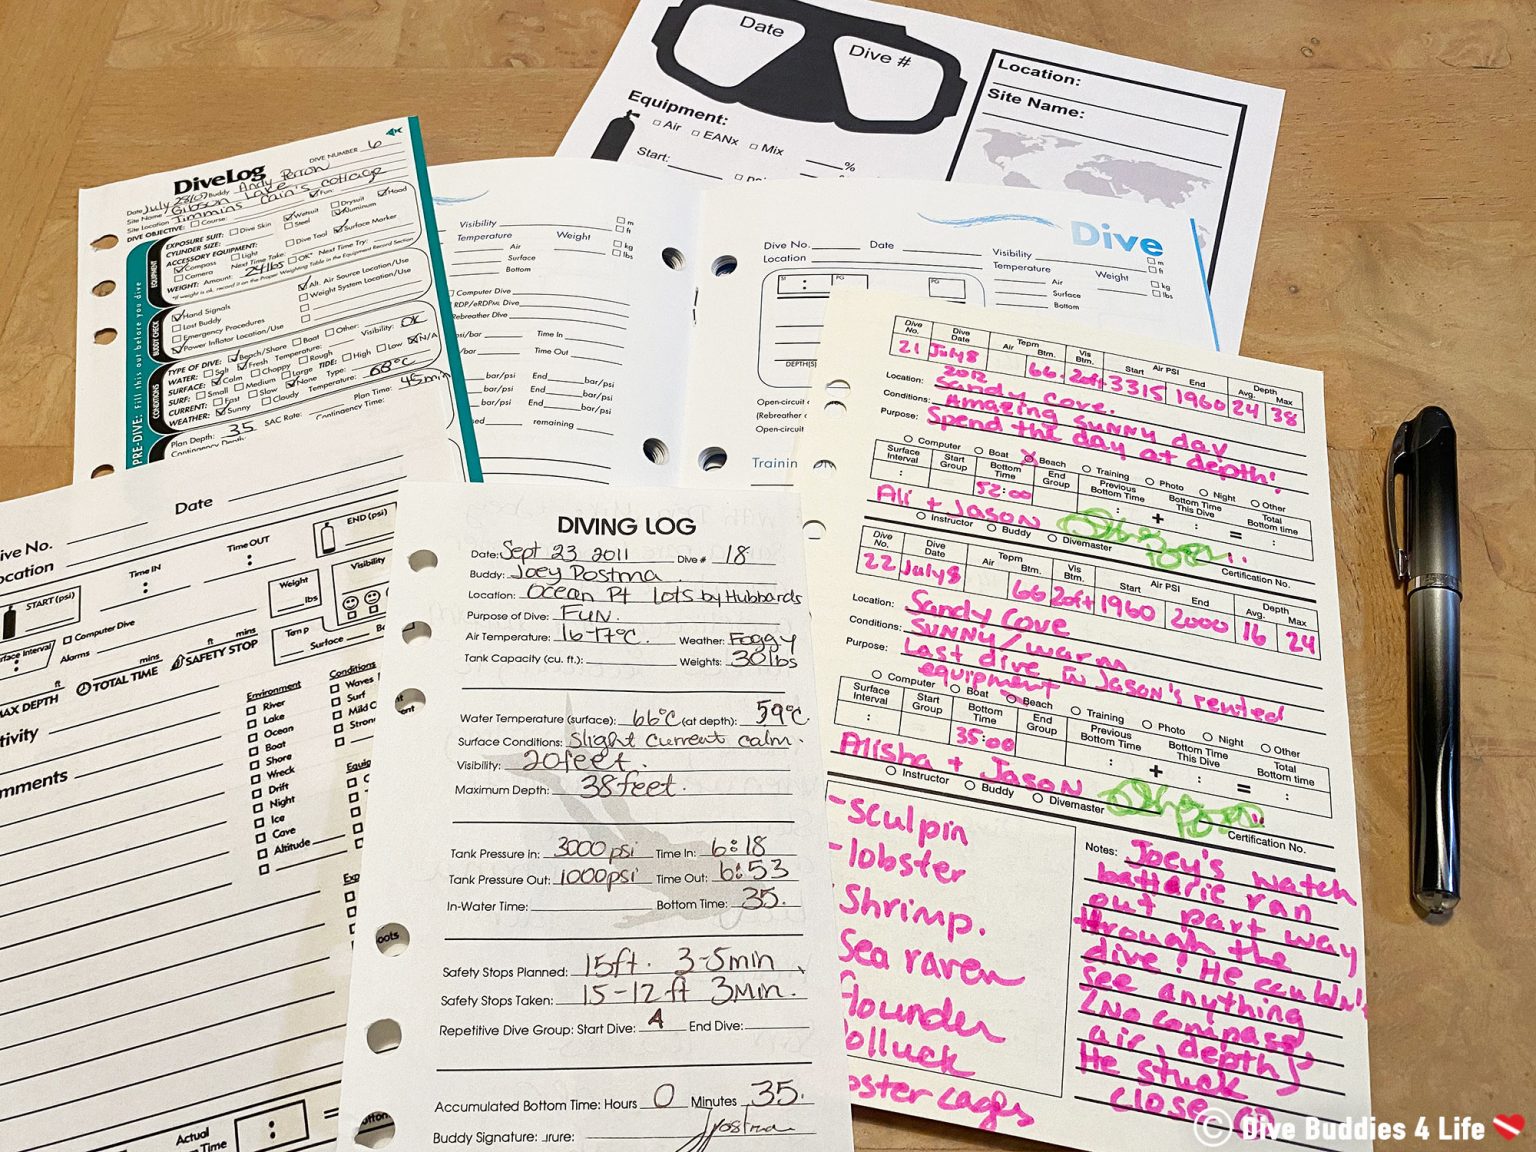 Date
Dive #
Equipment:
Air EANx Mix
%
Start:
Location:
Site Name:
DiveLog
DIVE NUMBER 6
Date July 23/07 Buddy Andy Perron
Site Name Gibson Lake
Site Location Timmins Cain's cottage
DIVE OBJECTIVE: Course: Fun:
EXPOSURE SUIT: Dive Skin Wetsuit Drysuit Hood
CYLINDER SIZE: Steel Aluminum
ACCESSORY EQUIPMENT:
Compass Light Dive Tool Surface Marker
Camera Next Time Take:
WEIGHT: Amount 24lbs OK Next Time Try:
*If weight is ok, record it on the Proper Weighting Table in the Equipment Record Section
EQUIPMENT
Hand Signals Alt. Air Source Location/Use
Lost Buddy Weight System Location/Use
Emergency Procedures
Power Inflator Location/Use
BUDDY CHECK
TYPE OF DIVE: Beach/Shore Boat Other: Visibility: OK
WATER: Salt Fresh Temperature:
SURFACE: Calm Choppy Rough
SURF: Small Medium Large TIDE: High Low N/A
CURRENT: Fast Slow None Type:
WEATHER: Sunny Cloudy Temperature: 68°C
CONDITIONS
Plan Depth: 35 SAC Rate: Plan Time: 45min
Contingency Depth: Contingency Time:
PRE-DIVE: Fill this out before you dive
Visibility m
ft
Temperature Weight kg
lbs
Air
Surface
Bottom
Computer Dive
RDP/eRDPML Dive
Rebreather Dive
psi/bar Time In
/bar Time Out
bar/psi End bar/psi
bar/psi End bar/psi
used remaining
Dive
Dive No. Date
Location
Visibility m
ft
Temperature Weight kg
lbs
Air
Surface
Bottom
SI PG PG
DEPTH(S)
Open-circuit
(Rebreather
Open-circuit
Training
Date
Dive No.
Location
Time IN
Time OUT
END (psi)
START (psi)
Weight
lbs
Visibility
Computer Dive
Alarms
Surface Interval
Temp
Surface
ft mins
SAFETY STOP
mins
TOTAL TIME
ft
MAX DEPTH
Activity
Comments
Environment
River
Lake
Ocean
Boat
Shore
Wreck
Drift
Night
Ice
Cave
Altitude
Conditions
Waves
Surf
Mild C
Strong
Equip
Exp
Actual
Time
DIVING LOG
Date: Sept 23 2011 Dive # 18
Buddy: Joey Postma
Location: Ocean Pt lots by Hubbards
Purpose of Dive: FUN
Air Temperature: 16-17°C. Weather: Foggy
Tank Capacity (cu. ft.): Weights: 30lbs
Water Temperature (surface): 66°C (at depth): 59°C
Surface Conditions: Slight current calm.
Visibility: 20feet.
Maximum Depth: 38feet.
Tank Pressure In: 3000psi Time In: 6:18
Tank Pressure Out: 1000psi Time Out: 6:53
In-Water Time: Bottom Time: 35.
Safety Stops Planned: 15ft. 3-5min
Safety Stops Taken: 15-12ft 3min.
Repetitive Dive Group: Start Dive: A End Dive:
Accumulated Bottom Time: Hours 0 Minutes 35.
Buddy Signature: JPostma
Dive No. Dive Date Tepm Air Btm. Vis Btm. Air PSI Start End Depth Avg. Max
21 July 8 2012 66° 20ft 3315 1960 24 38
Location: Sandy Cove.
Conditions: Amazing sunny day
Purpose: Spend the day at depth!
Computer Boat Beach Training Photo Night Other
Surface Interval Start Group Bottom Time End Group Previous Bottom Time Bottom Time This Dive Total Bottom time
: 52:00 : + : = :
Ali + Jason
Instructor Buddy Divemaster Certification No.
Dive No. Dive Date Tepm Air Btm. Vis Btm. Air PSI Start End Depth Avg. Max
22 July 8 66 20ft 1960 2000 16 24
Location: Sandy Cove
Conditions: Sunny/warm
Purpose: Last dive in Jason's rented
equipment
Computer Boat Beach Training Photo Night Other
Surface Interval Start Group Bottom Time End Group Previous Bottom Time Bottom Time This Dive Total Bottom time
: 35:00 : + : = :
Alisha + Jason
Instructor Buddy Divemaster Certification No.
-Sculpin
-lobster
Shrimp.
Sea raven
flounder
Polluck
lobster cages
Notes: Joey's watch
batterie ran
out part way
through the
dive! He couldn't
see anything
(No compass
air, depth)
He stuck
close :)
© Dive Buddies 4 Life